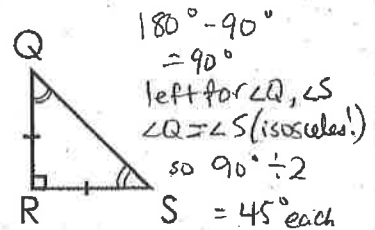 180° - 90°
= 90°
left for ∠Q, ∠S
∠Q = ∠S (isosceles!)
so 90° ÷ 2
= 45° each
Q
R
S